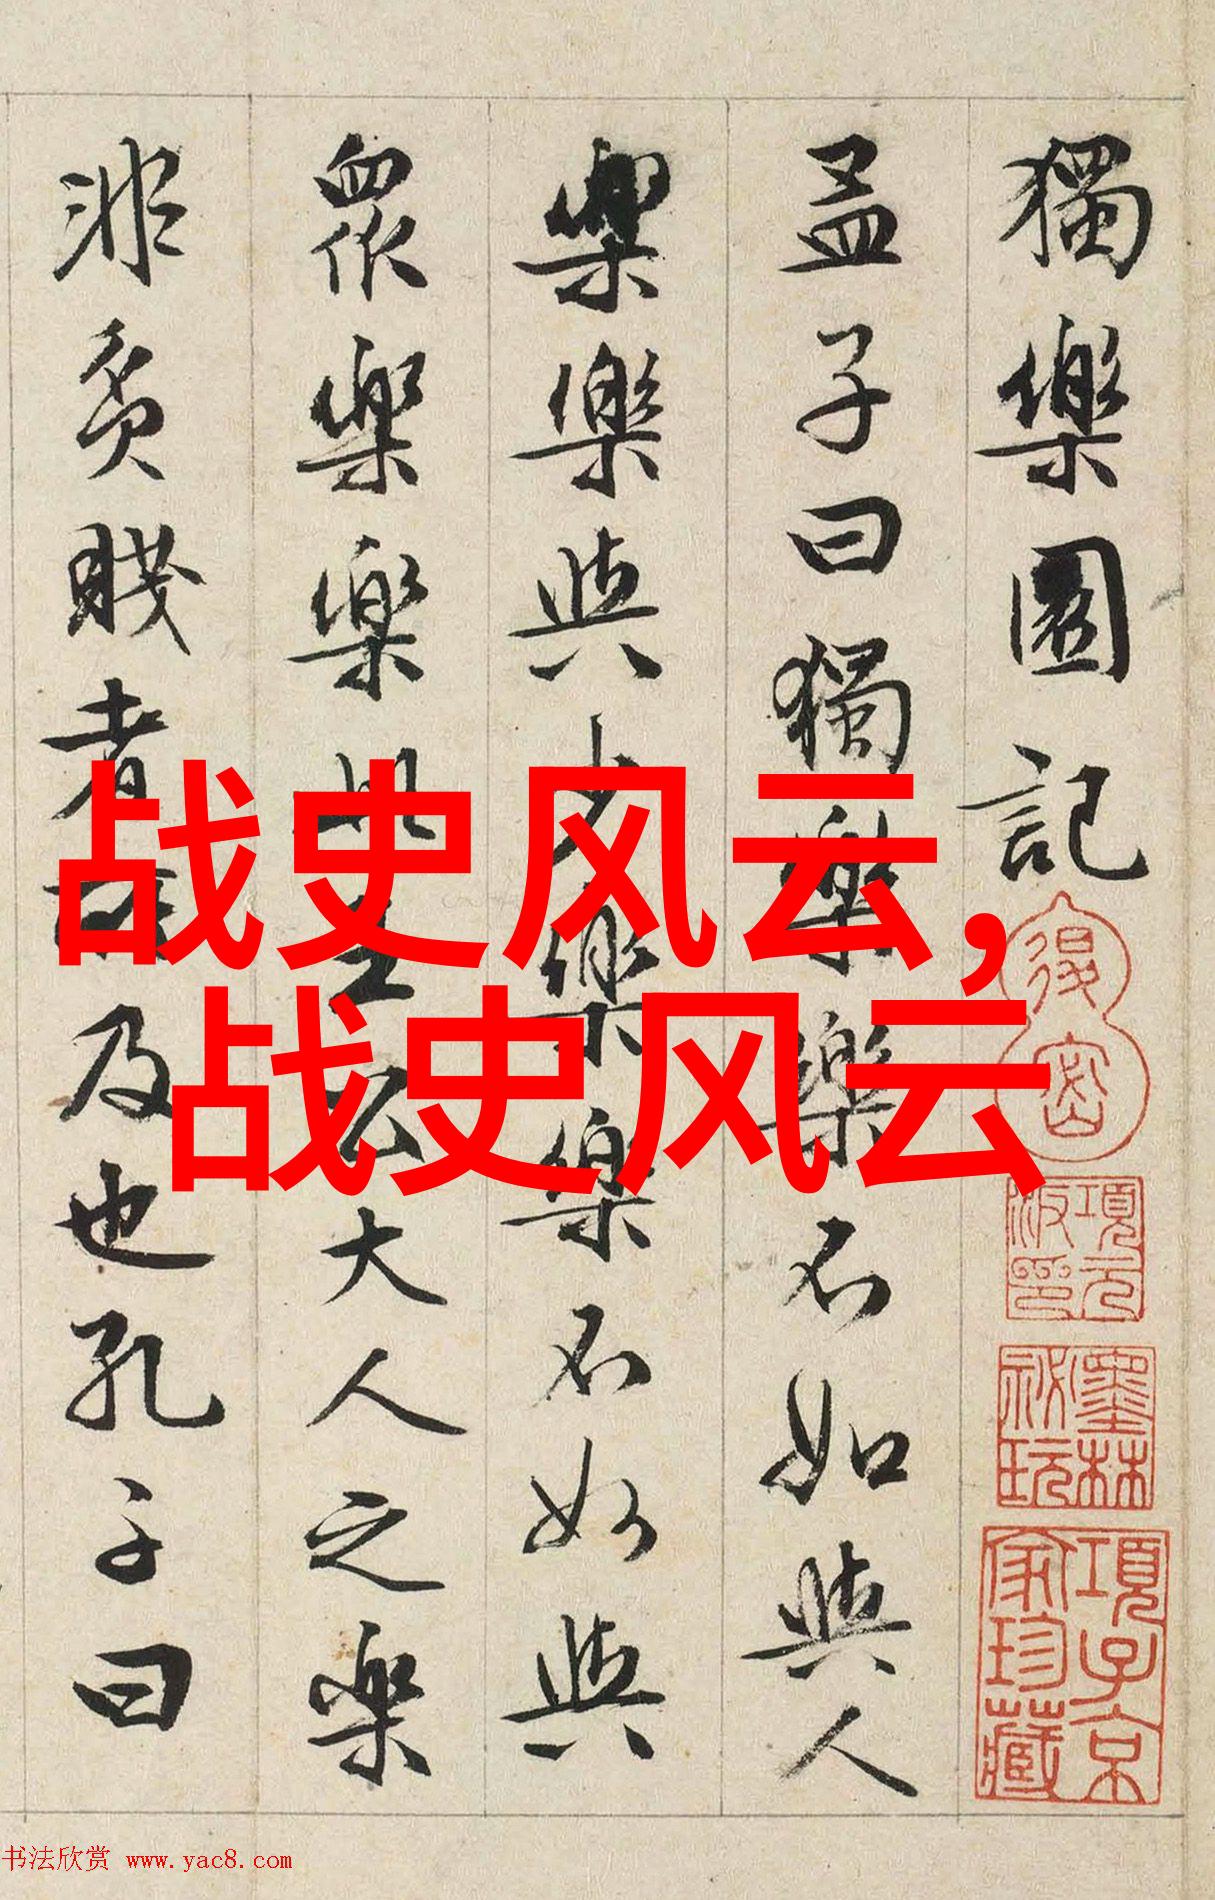 獨樂園記
孟子曰獨樂樂不如與人
樂樂與少樂樂不如與
眾樂樂此王公大人之樂
非貧賤者所及也孔子曰
項元汴印
墨林秘玩
項子京家珍藏
战史风云,
战史风云
书法欣赏 www.yac8.com